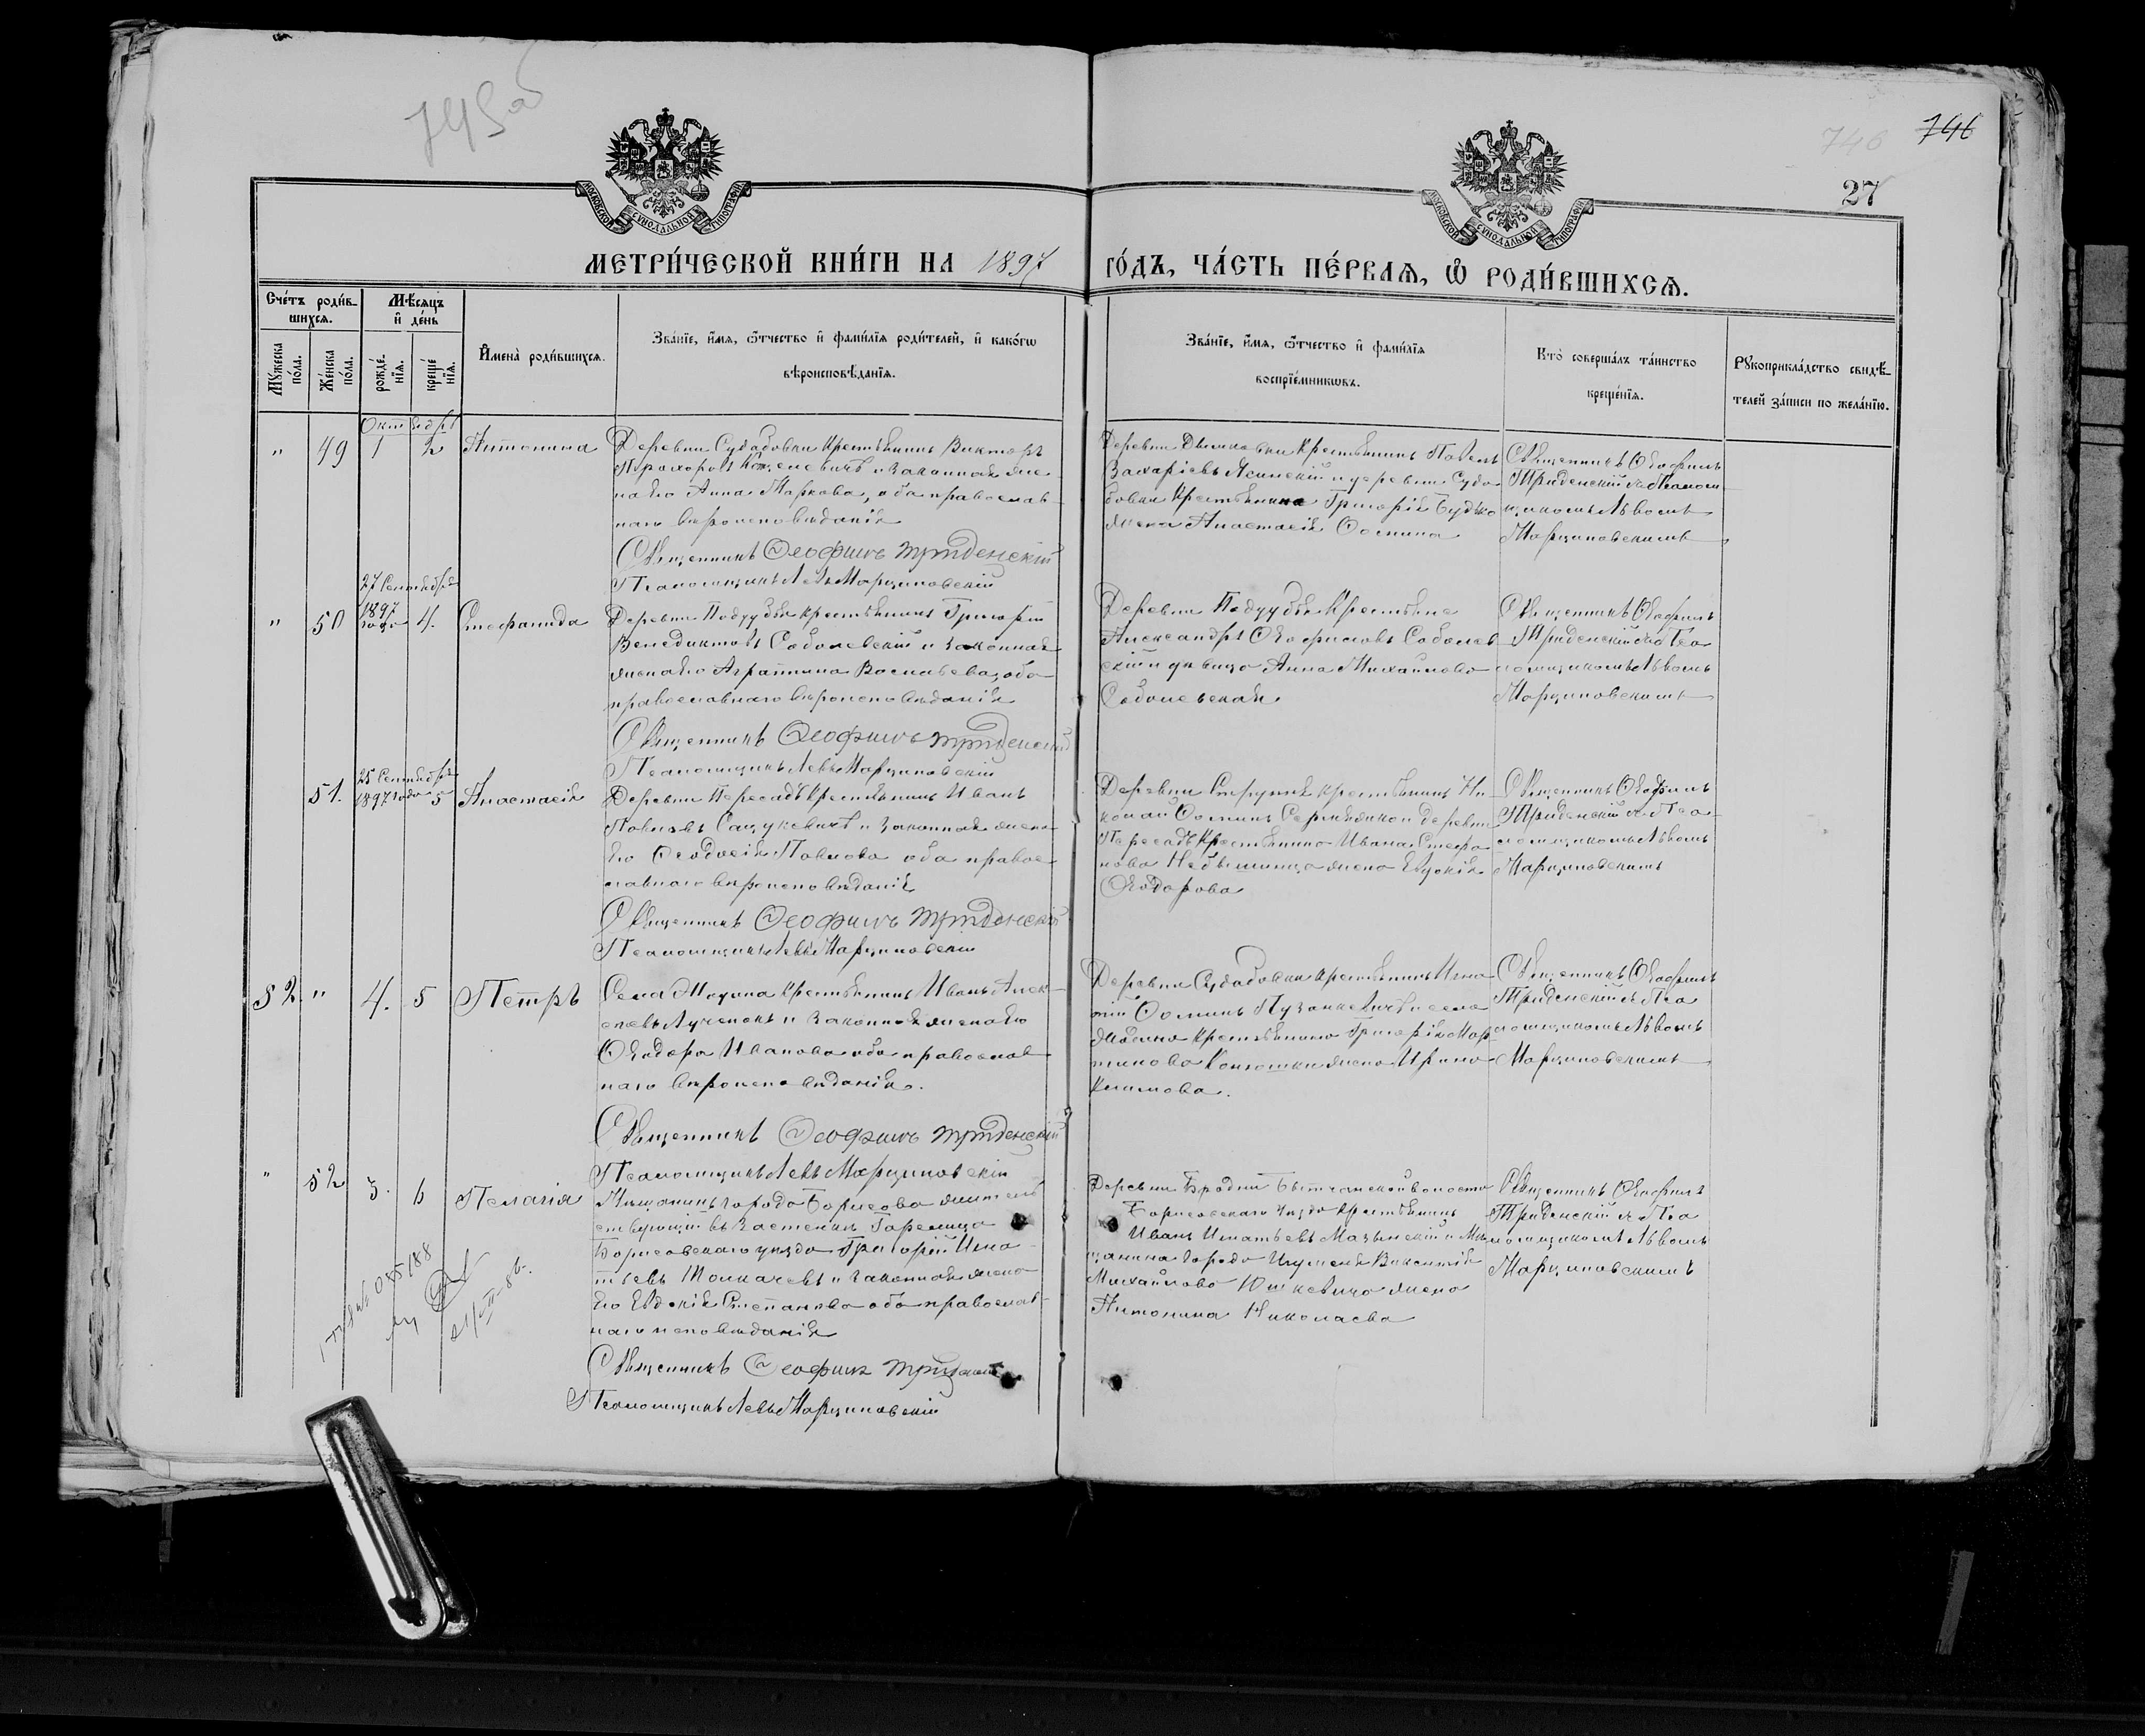 746
746
27
МОСКОВСКОЙ СΥНОДАЛЬНОЙ ТИПОГРАФІИ
МОСКОВСКОЙ СΥНОДАЛЬНОЙ ТИПОГРАФІИ
МЕТРИ́ЧЕСКОЙ КНИ́ГИ НА 1897 ГО́ДЪ, ЧА́СТЬ ПЕ́РВАЯ, Ѡ҆ РОДИ́ВШИХСЯ.
Сче́тъ роди́в-
шихся.
Мꙋ́жеска по́ла.
Же́нска по́ла.
Мѣ́сяцъ и҆ де́нь
рожде́-нїя.
креще́-нїя.
И҆мена̀ роди́вшихся.
Зва́нїе, и҆́мя, ѻ҆́тчество и҆ фами́лїя роди́телей, и҆ како́гѡ
вѣроисповѣ́данїя.
Зва́нїе, и҆́мя, ѻ҆́тчество и҆ фами́лїя
воспрїе́мникѡвъ.
Кто̀ соверша́лъ та́инство
креще́нїя.
Рꙋкоприкла́дство свидѣ́-
телей за́писи по жела́нїю.
Октябрь
" 49 1 2 Антонина
Деревни Судабовки крестьянинъ Викторъ
Прохоровъ и законная же-
на его Анна Маркова, оба православ-
наго вѣроисповѣданія
Священникъ Ѳеофилъ Триденскій
Псаломщикъ Левъ Марциновскій
Деревни Крестьянинъ Павелъ
Захаріевъ Ясинскій и деревни Судо-
бовки Крестьянина Григорія Будько
жена Анастасія Ѳомина
Священникъ Ѳеофилъ
Триденскій съ Псалом-
щикомъ Львомъ
Марциновскимъ
27 Сентября
1897
года
" 50 4. Стефанида
Деревни Подрубежа крестьянинъ Григорій
Венедиктовъ Соболевскій и законная
жена его Агрипина Васильева, оба
православнаго вѣроисповѣданія
Священникъ Ѳеофилъ Триденскій
Псаломщикъ Левъ Марциновскій
Деревни Крестьяне
Александръ Соболев-
скій и дѣвица Анна Михайлова
Соболевская
Священникъ Ѳеофилъ
Триденскій съ Пса-
ломщикомъ Львомъ
Марциновскимъ
25 Сентября
1897 года
51. 5 Анастасія
Деревни Пересады Крестьянинъ Иванъ
Павловъ Сацукевичъ и законная жена
его Ѳеодосія Павлова оба право-
славнаго вѣроисповѣданія
Священникъ Ѳеофилъ Триденскій
Псаломщикъ Левъ Марциновскій
Деревни крестьянинъ Ни-
колай Ѳоминъ и деревни
Пересады Крестьянина Ивана Стефа-
нова жена Евдокія
Ѳеодорова
Священникъ Ѳеофилъ
Триденскій съ Пса-
ломщикомъ Львомъ
Марциновскимъ
52 " 4. 5 Петръ
Села Крестьянинъ Иванъ Алек-
сѣевъ Лученокъ и законная жена его
Ѳеодора Иванова оба православ-
наго вѣроисповѣданія.
Священникъ Ѳеофилъ Триденскій
Псаломщикъ Левъ Марциновскій
Деревни Судабовки крестьянинъ Игна-
тій Ѳоминъ Пузанкевичъ и села
крестьянина Григорія Мар-
тинова жена Ирина
Климова.
Священникъ Ѳеофилъ
Триденскій съ Пса-
ломщикомъ Львомъ
Марциновскимъ
" 52 3. 6 Пелагія
Мѣщанинъ города Борисова житель-
ствующій въ Застѣнкѣ Гарелица
Борисовскаго уѣзда Григорій Игна-
тьевъ Толкачевъ и законная жена
его Евдокія Степанова оба православ-
наго исповѣданія
Священникъ Ѳеофилъ Триденскій
Псаломщикъ Левъ Марциновскій
Деревни Бродни Бытчанской волости
Борисовскаго уѣзда крестьянинъ
Иванъ Игнатьевъ Мазынскій и Мѣ-
щанина города Игумена Викентія
Михайлова Юшкевича жена
Антонина Николаева
Священникъ Ѳеофилъ
Триденскій съ Пса-
ломщикомъ Львомъ
Марциновскимъ